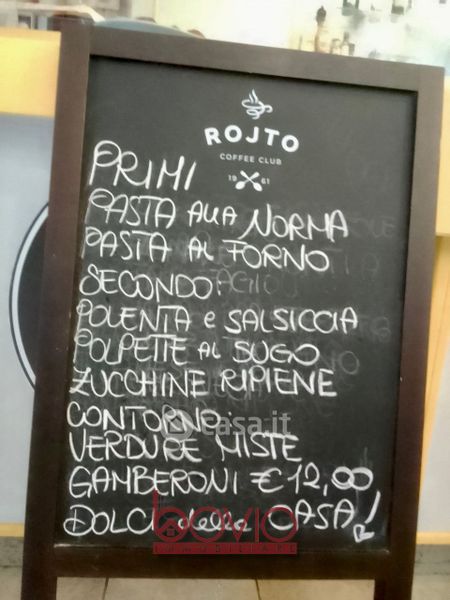 ROJTO
COFFEE CLUB
19 61
PRIMI
PASTA ALLA NORMA
PASTA AL FORNO
SECONDO:
POLENTA e SALSICCIA
POLPETTE AL SUGO
ZUCCHINE RIPIENE
CONTORNO:
casa.it
VERDURE MISTE
GAMBERONI € 12,00
bovio
IMMOBILIARE
DOLCI della CASA!